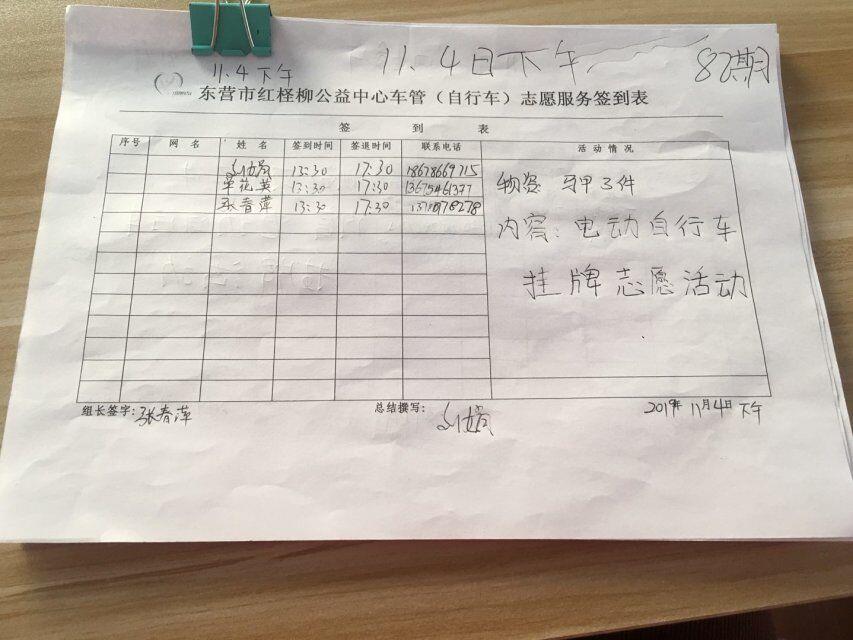 11.4下午 11.4日下午 82期
东营市红柽柳公益中心车管（自行车）志愿服务签到表
签 到 表
序号 网 名 姓 名 签到时间 签退时间 联系电话 活动情况
13:30 17:30 18678669715
单花英 13:30 17:30 13675461377
张春萍 13:30 17:30
物资: 马甲3件
内容: 电动自行车
挂牌志愿活动
组长签字: 张春萍 总结撰写: 2019年11月4日下午